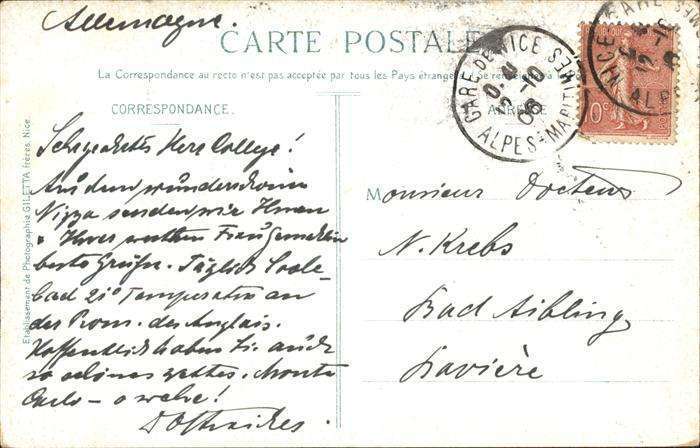 Allemagne.
CARTE POSTALE
La Correspondance au recto n'est pas acceptée par tous les Pays étrangers
CORRESPONDANCE.
Sehrgeehrter Herr College!
Aus dem wunderschönen
Nizza senden wir Ihnen
u Ihrer werthen Frau Gemahlin
beste Grüße. Täglich Soole-
bad 21° Temperatur an
der Prom. des Anglais.
Hoffentlich haben Sie auch
so schönes Wetter. Monte
Carlo - o wehe!
Monsieur Docteur
N. Krebs
Bad Aibling
Bavière
ADRESSE
GARE DE NICE
ALPES-MARITIMES
2-10
06
10c
GARE
NICE
ALP
Etablissement de Photographie GILETTA frères, Nice